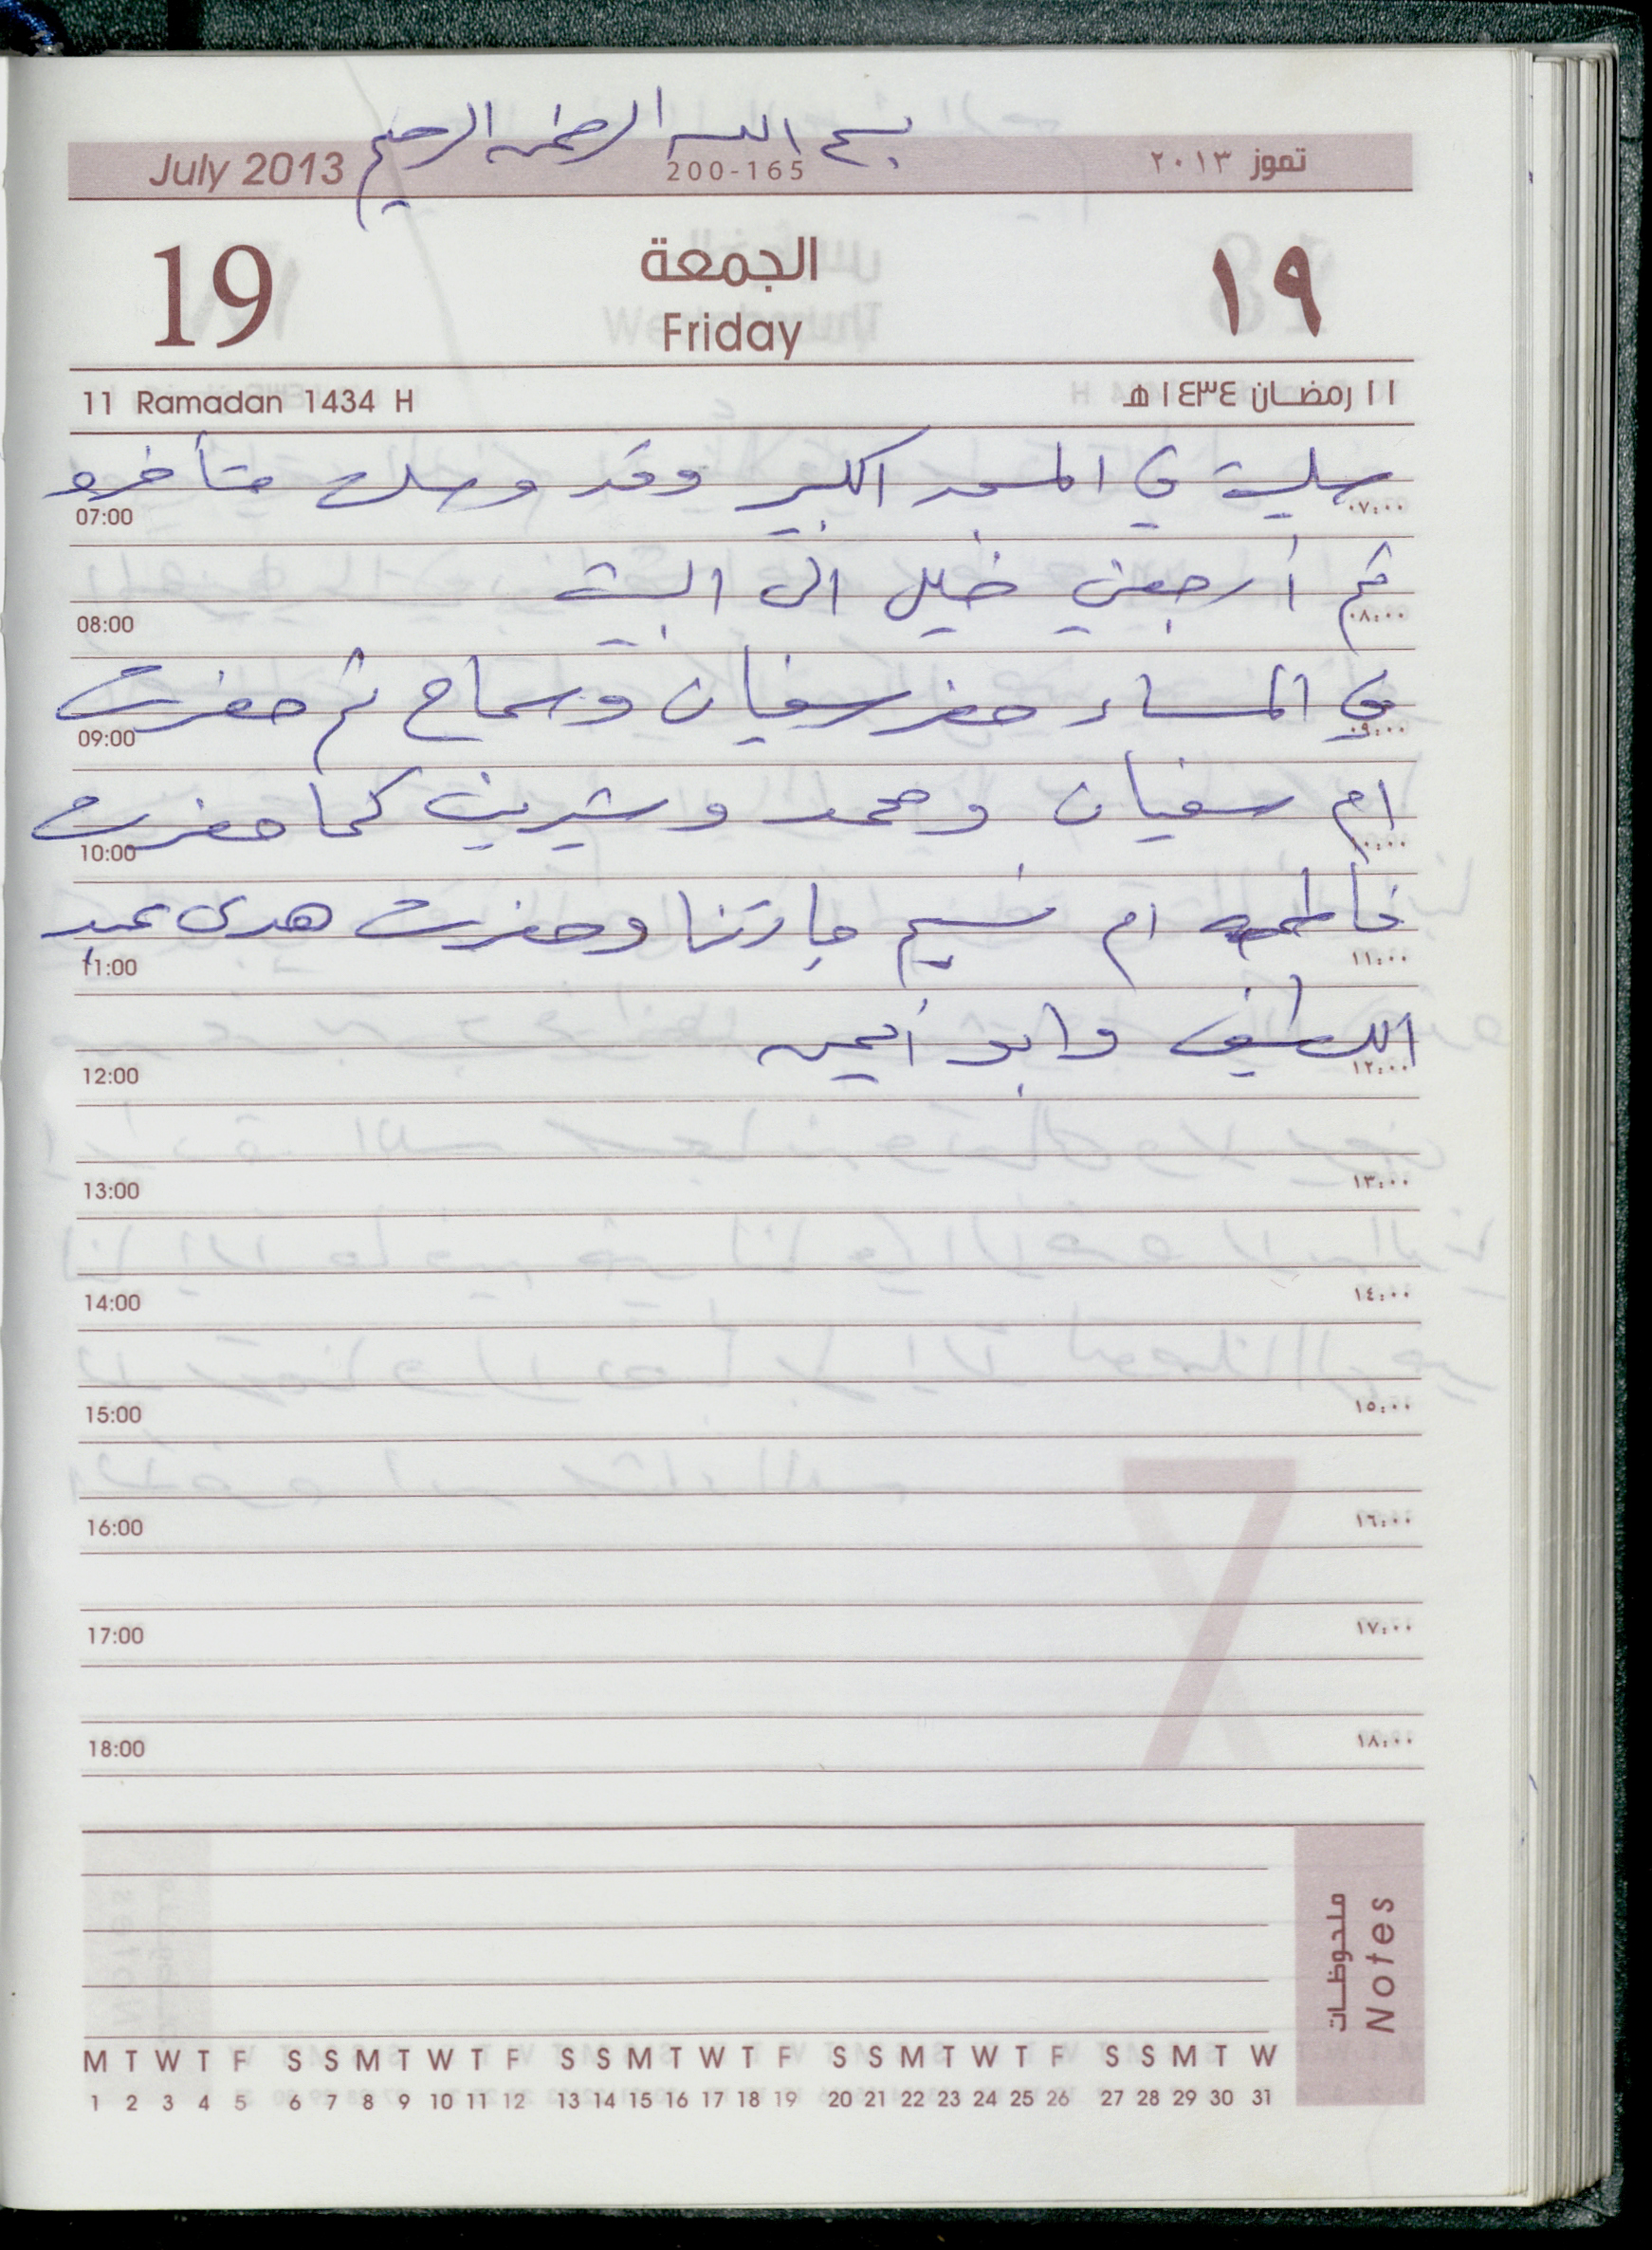 بسم الله الرحمن الرحيم
July 2013 200-165 تموز ٢٠١٣
19 الجمعة ١٩
Friday
11 Ramadan 1434 H ١١ رمضان ١٤٣٤ هـ
صليت في المسجد الكبير وقد وصلت متأخرو
07:00 ٠٧:٠٠
ثم أرجعني خليل الى البيت
08:00 ٠٨:٠٠
في المساء حضر سفيان وسماح ثم حضرت
09:00 ٠٩:٠٠
ام سفيان ومحمد وشيرين كما حضرت
10:00 ١٠:٠٠
فاطمه ام نسيم جارتنا وحضرت هدى عبد
11:00 ١١:٠٠
اللطيف وابو أيمن
12:00 ١٢:٠٠
13:00 ١٣:٠٠
14:00 ١٤:٠٠
15:00 ١٥:٠٠
16:00 ١٦:٠٠
17:00 ١٧:٠٠
18:00 ١٨:٠٠
7
ملحوظات
Notes
M T W T F S S M T W T F S S M T W T F S S M T W T F S S M T W
1 2 3 4 5 6 7 8 9 10 11 12 13 14 15 16 17 18 19 20 21 22 23 24 25 26 27 28 29 30 31